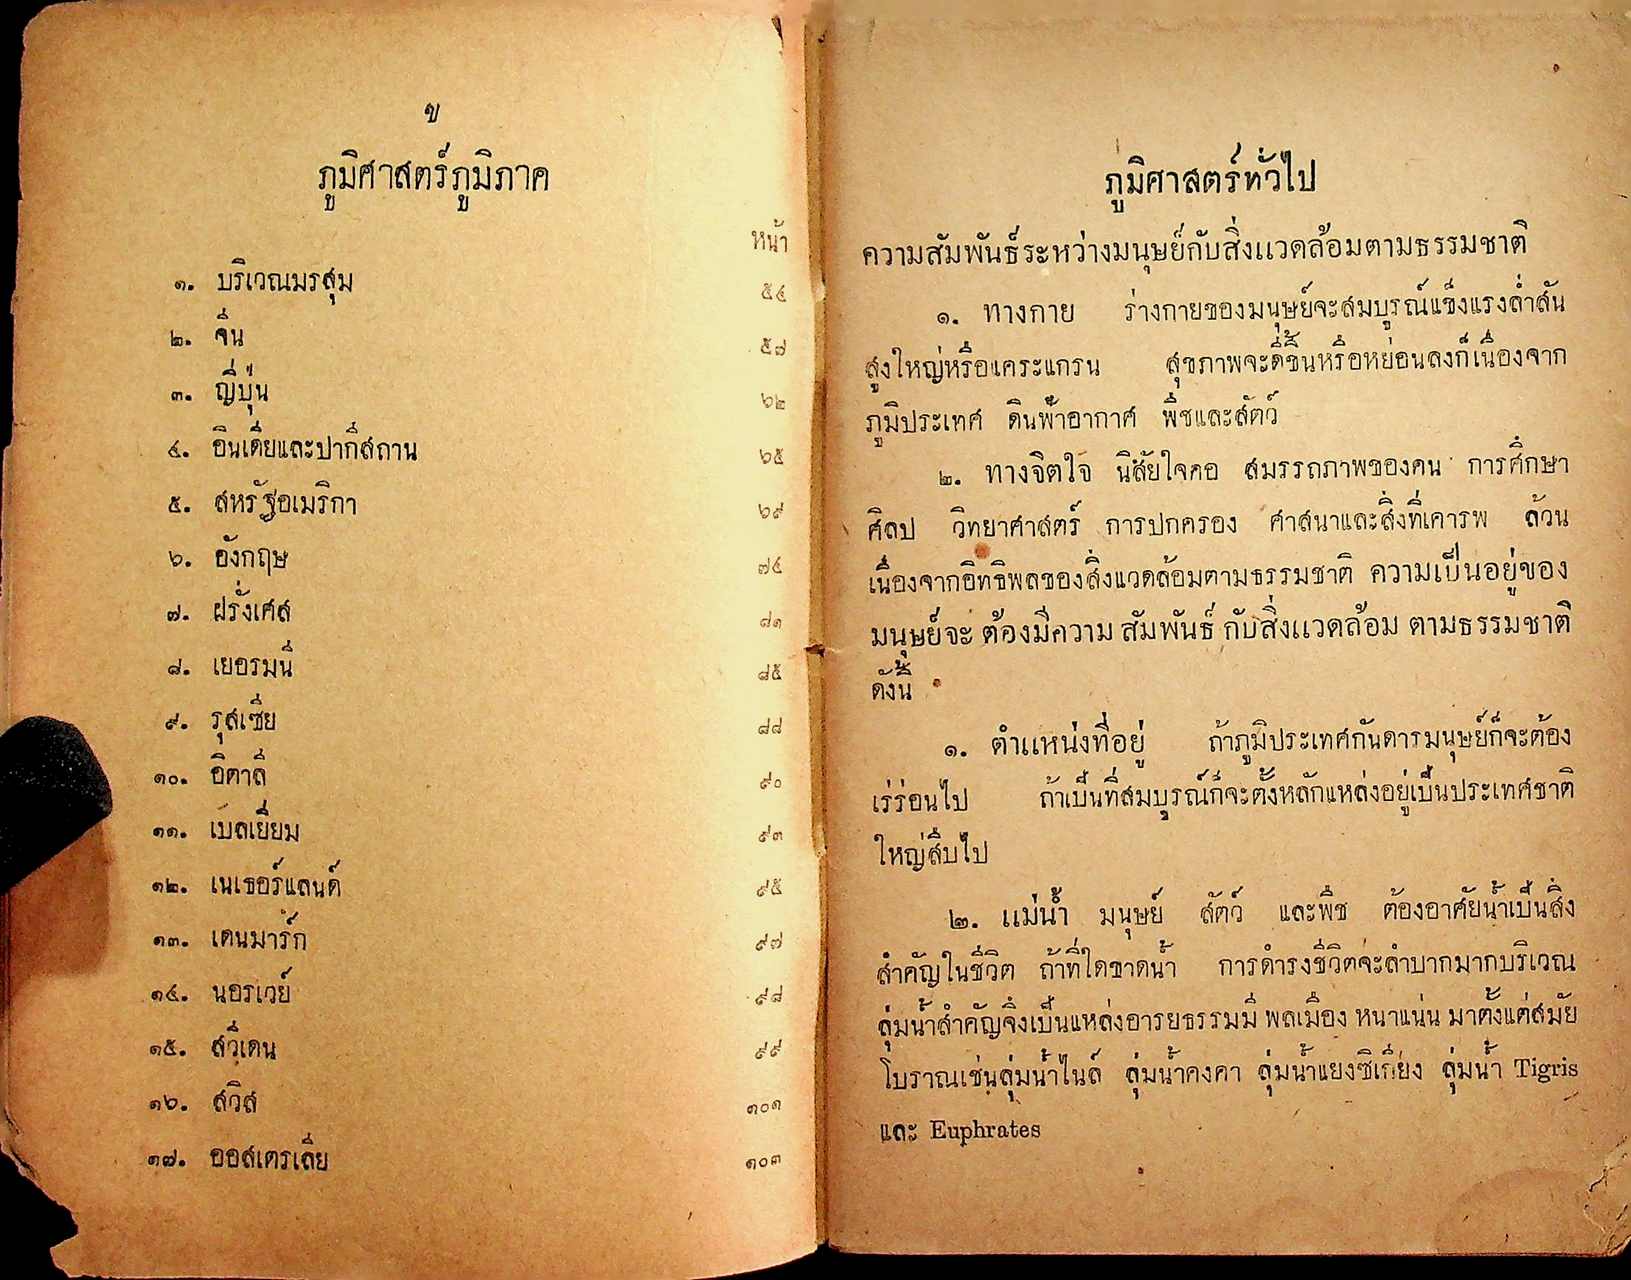 ข
ภูมิศาสตร์ภูมิภาค
หน้า
๑. บริเวณมรสุม ๕๔
๒. จีน ๕๗
๓. ญี่ปุ่น ๖๒
๔. อินเดียและปากีสถาน ๖๕
๕. สหรัฐอเมริกา ๖๙
๖. อังกฤษ ๗๔
๗. ฝรั่งเศส ๘๑
๘. เยอรมนี ๘๕
๙. รุสเซีย ๘๘
๑๐. อิตาลี ๙๐
๑๑. เบลเยี่ยม ๙๓
๑๒. เนเธอร์แลนด์ ๙๕
๑๓. เดนมาร์ก ๙๗
๑๔. นอรเวย์ ๙๘
๑๕. สวีเดน ๙๙
๑๖. สวิส ๑๐๑
๑๗. ออสเตรเลีย ๑๐๓
ภูมิศาสตร์ทั่วไป
ความสัมพันธ์ระหว่างมนุษย์กับสิ่งแวดล้อมตามธรรมชาติ
๑. ทางกาย ร่างกายของมนุษย์จะสมบูรณ์แข็งแรงล่ำสัน
สูงใหญ่หรือเคระแกรน สุขภาพจะดีขึ้นหรือหย่อนลงก็เนื่องจาก
ภูมิประเทศ ดินฟ้าอากาศ พืชและสัตว์
๒. ทางจิตใจ นิสัยใจคอ สมรรถภาพของคน การศึกษา
ศิลป วิทยาศาสตร์ การปกครอง ศาสนาและสิ่งที่เคารพ ล้วน
เนื่องจากอิทธิพลของสิ่งแวดล้อมตามธรรมชาติ ความเป็นอยู่ของ
มนุษย์จะ ต้องมีความ สัมพันธ์ กับสิ่งแวดล้อม ตามธรรมชาติ
ดังนี้
๑. ตำแหน่งที่อยู่ ถ้าภูมิประเทศกันดารมนุษย์ก็จะต้อง
เร่ร่อนไป ถ้าเป็นที่สมบูรณ์ก็จะตั้งหลักแหล่งอยู่เป็นประเทศชาติ
ใหญ่สืบไป
๒. แม่น้ำ มนุษย์ สัตว์ และพืช ต้องอาศัยน้ำเป็นสิ่ง
สำคัญในชีวิต ถ้าที่ใดขาดน้ำ การดำรงชีวิตจะลำบากมากบริเวณ
ลุ่มน้ำสำคัญจึงเป็นแหล่งอารยธรรมมี พลเมือง หนาแน่น มาตั้งแต่สมัย
โบราณเช่นลุ่มน้ำไนล์ ลุ่มน้ำคงคา ลุ่มน้ำแยงซิเกียง ลุ่มน้ำ Tigris
และ Euphrates